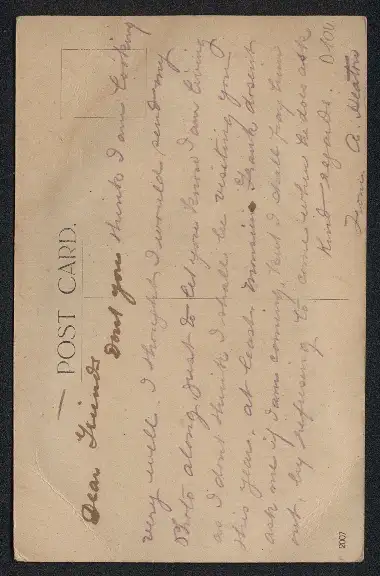 POST CARD.
Dear Friends
Dont you think I am looking
very well. I thought I would send my
Photo along just to let you know I am living
as I dont think I shall be visiting you
this year, at least Frank dosent
ask me if I am coming, but I shall pay him
out, by refusing to come when he does ask
Kind regards.
From A. Heaton
2007